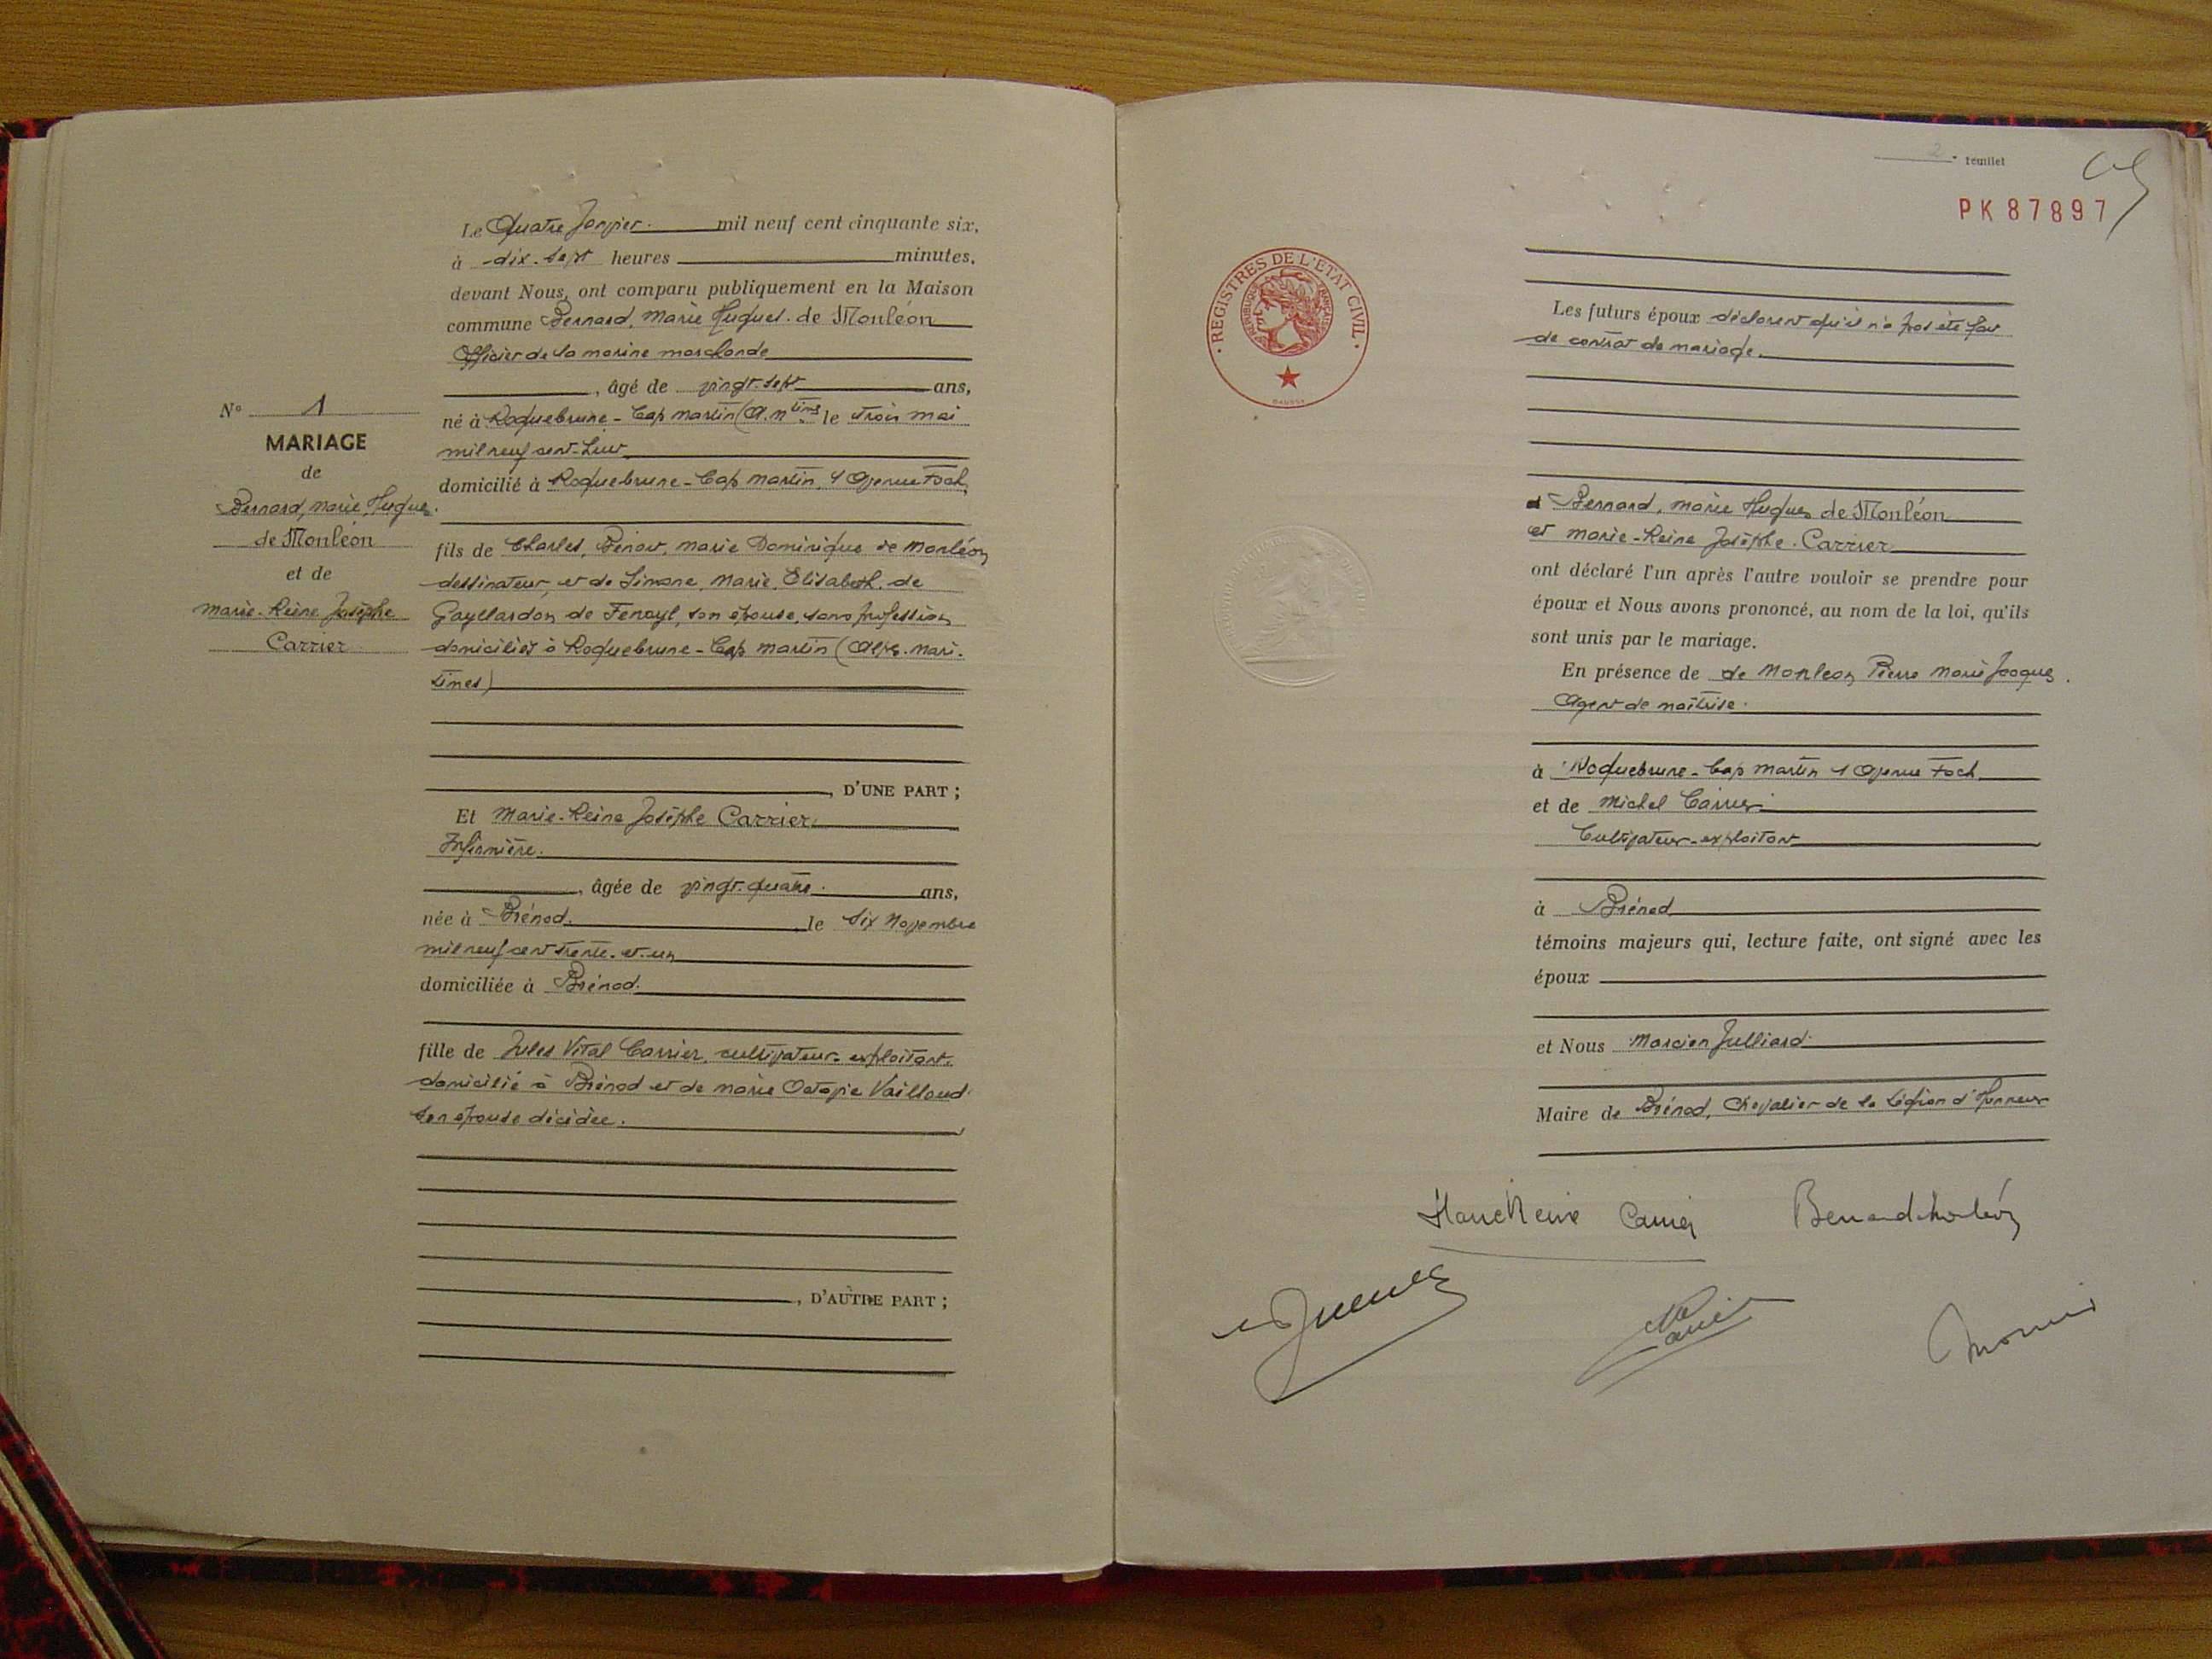 Le Quatre Janvier mil neuf cent cinquante six,
à dix-sept heures minutes,
devant Nous, ont comparu publiquement en la Maison
commune Bernard, Marie Hugues de Monléon
Officier de la marine marchande
, âgé de vingt-sept ans,
né à Roquebrune-Cap Martin (A. mtimes le trois mai
mil neuf cent
domicilié à Roquebrune-Cap Martin, Avenue Foch
N° 1
MARIAGE
de
Bernard, Marie Hugues
de Monléon
et de
Marie-Reine Josèphe
Carrier
fils de Charles, Marie Dominique de Monléon
dessinateur, et de Simone, Marie, Elisabeth, de
Gayllardon de Fenoyl, son épouse, sans profession
domiciliés à Roquebrune-Cap Martin (Alpes-Mari-
times)
, D'UNE PART ;
Et Marie-Reine Josèphe Carrier
Infirmière.
, âgée de vingt-quatre ans,
née à Brénod, le six Novembre
mil neuf cent trente-et-un
domiciliée à Brénod.
fille de Jules Vital Carrier, cultivateur-exploitant,
domicilié à Brénod et de Marie Octavie Vailloud
son épouse décédée.
, D'AUTRE PART ;
2e feuillet
PK 87897
REGISTRES DE L'ETAT CIVIL
REPUBLIQUE FRANÇAISE
Les futurs époux déclarent qu'il n'a pas été fait
de contrat de mariage.
Bernard, Marie Hugues de Monléon
et Marie-Reine Josèphe Carrier
ont déclaré l'un après l'autre vouloir se prendre pour
époux et Nous avons prononcé, au nom de la loi, qu'ils
sont unis par le mariage.
En présence de de Monléon Pierre Marie Jacques
Agent de maîtrise.
à Roquebrune-Cap Martin Avenue Foch
et de Michel Carrier
Cultivateur-exploitant
à Brénod
témoins majeurs qui, lecture faite, ont signé avec les
époux
et Nous Marcien Julliard
Maire de Brénod, Chevalier de la Légion d'Honneur
Marie Reine Carrier Bernard de Monléon